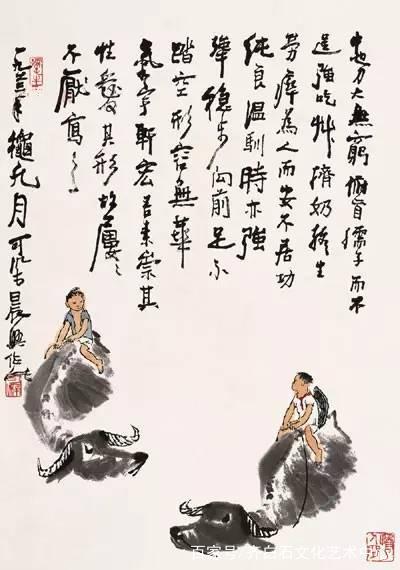 牛也力大無窮俯首孺子而不
逞強吃艸擠奶終生
勞瘁為人而安不居功
純良溫馴時亦強
犟穩步向前足不
踏空形容無華
氣宇軒宏吾素崇其
性愛其形故屢々
不厭寫之
一九六年龝九月可染晨興作
百家号/齐白石文化艺术中